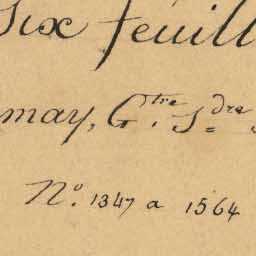 Six feuill
may, G.tre S.dre
N.o 1347 a 1564